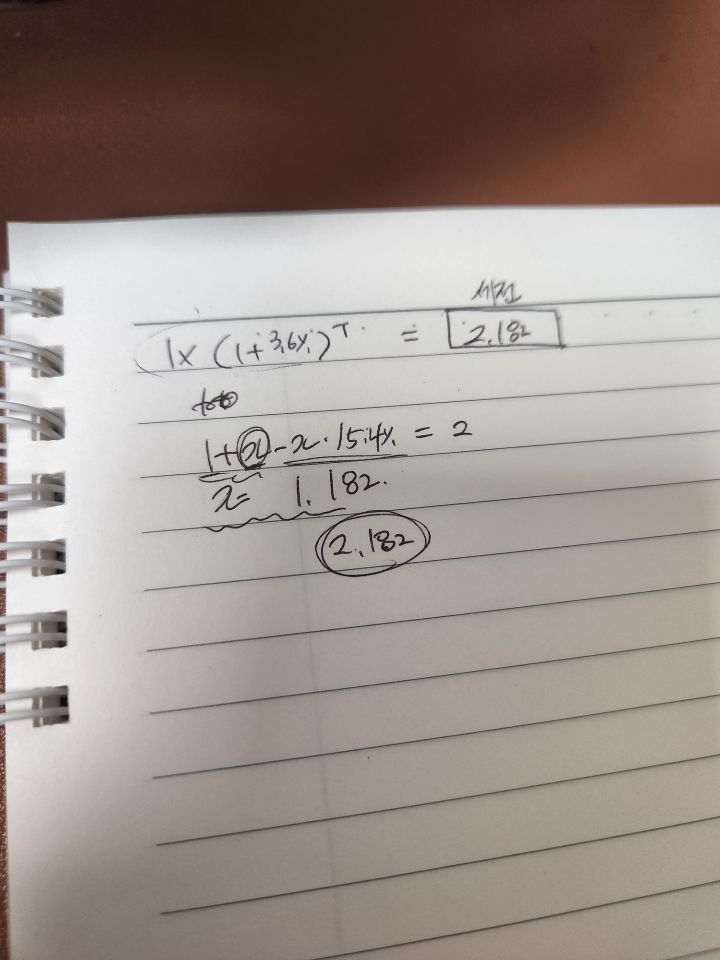 세전
1× (1+3.6%)^T = 2.182
1+x-x·15.4% = 2
x= 1.182.
2.182